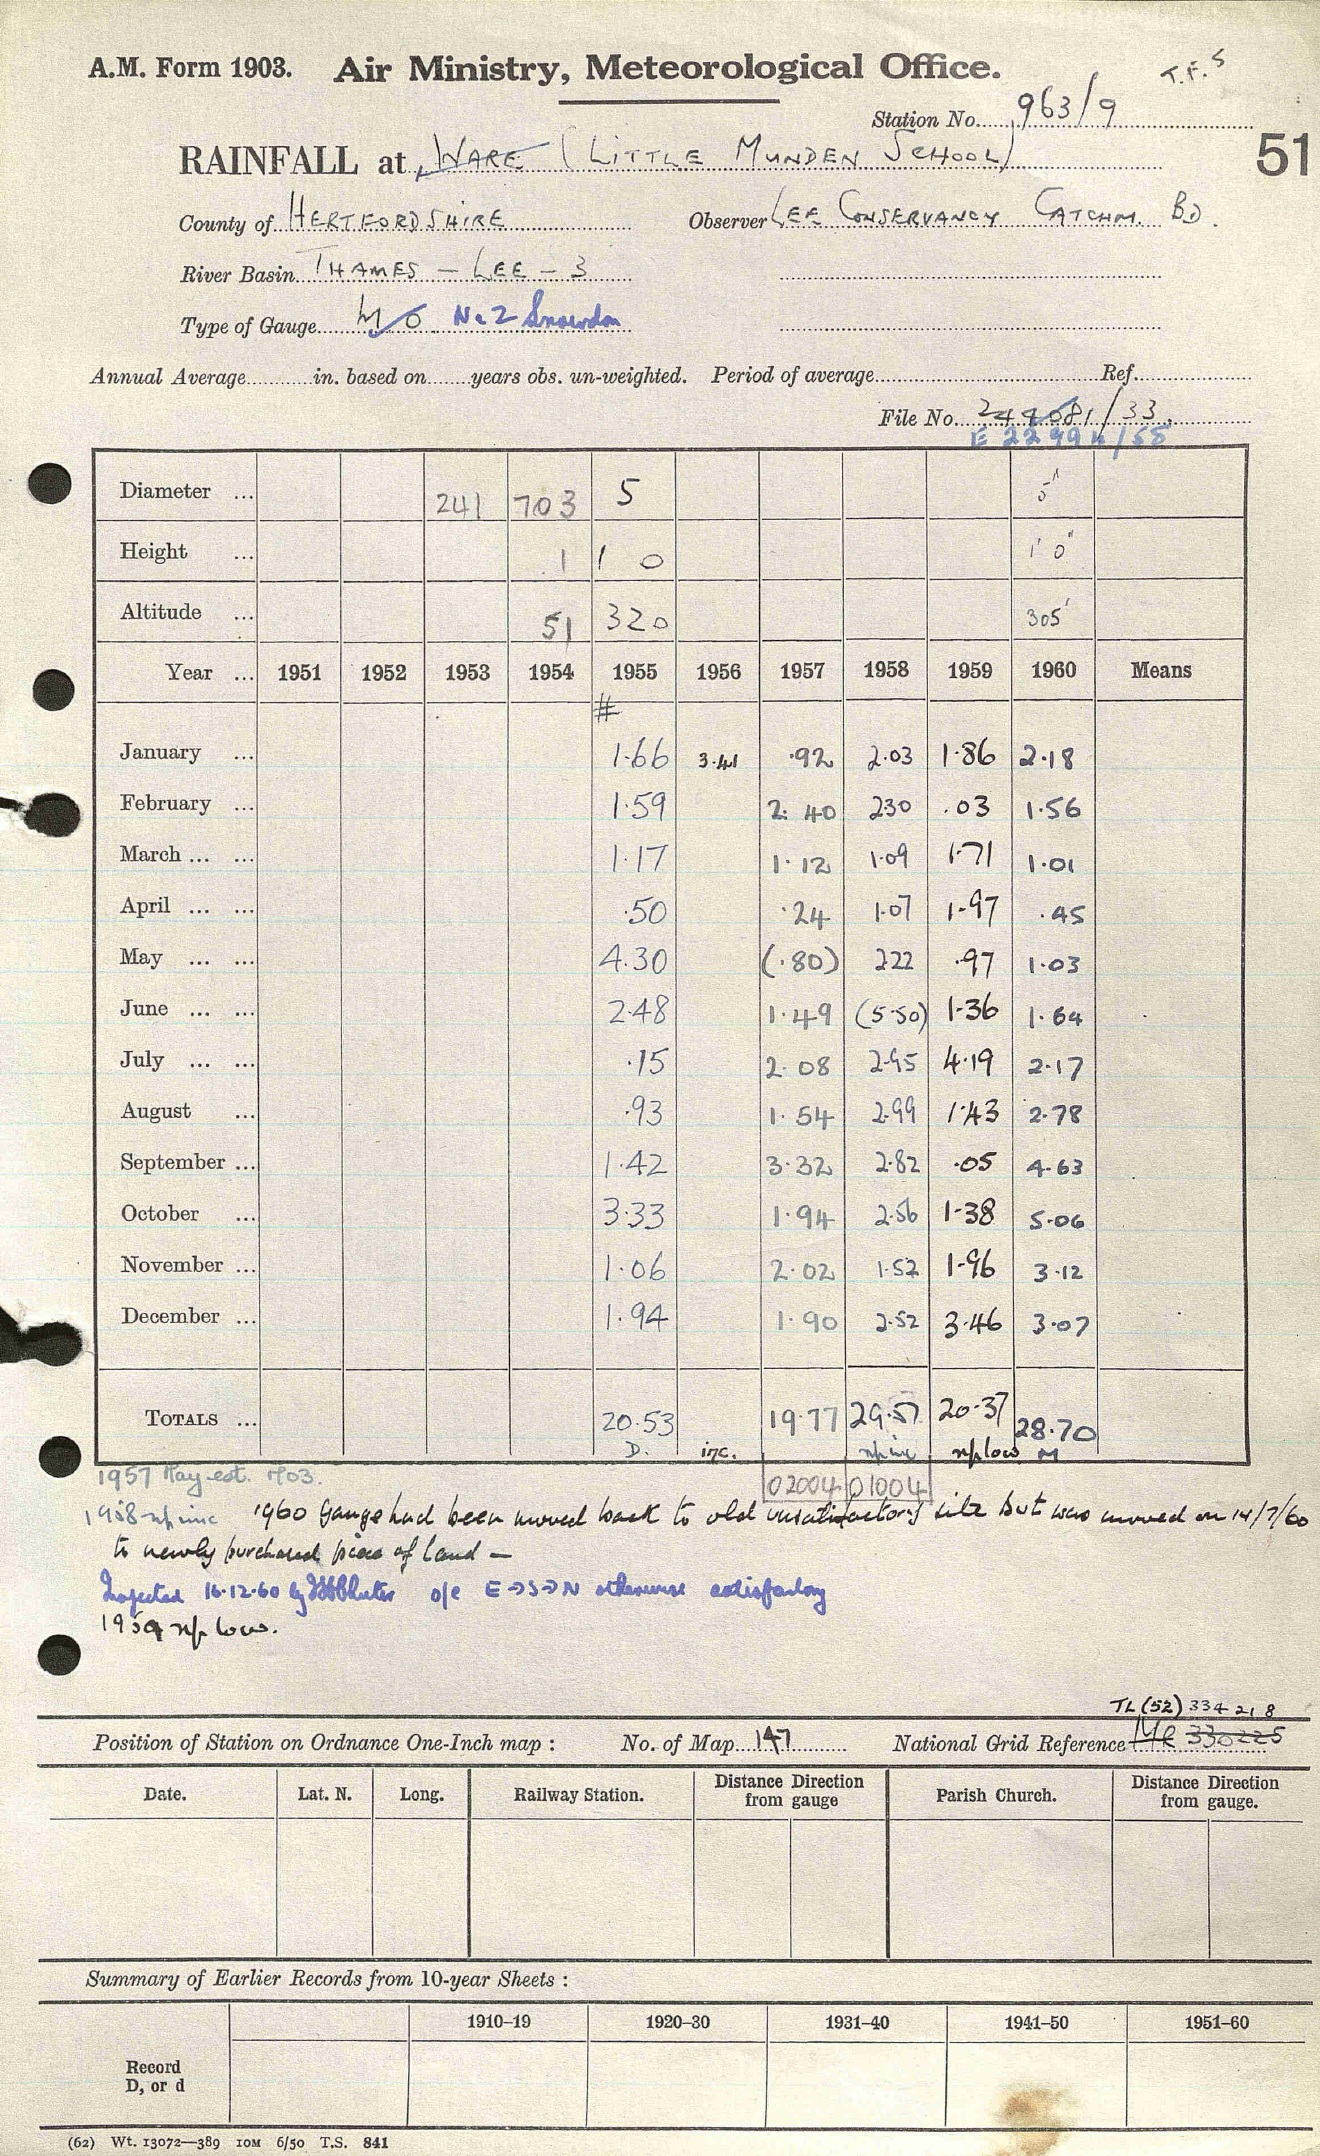 A.M. Form 1903. Air Ministry, Meteorological Office. T.F. 5
Station No. 963/9
RAINFALL at WARE (LITTLE MUNDEN SCHOOL) 51
County of HERTFORDSHIRE Observer LEE CONSERVANCY CATCHM. BD.
River Basin THAMES - LEE - 3
Type of Gauge MO No 2 Snowdon
Annual Average in. based on years obs. un-weighted. Period of average Ref.
File No. /33
E
Diameter ... 241 703 5 5"
Height ... 1 1 0 1' 0"
Altitude ... 51 320 305'
Year ... 1951 1952 1953 1954 1955 1956 1957 1958 1959 1960 Means
#
January ... 1.66 3.41 .92 2.03 1.86 2.18
February ... 1.59 2.40 230 .03 1.56
March ... ... 1.17 1.12 1.09 1.71 1.01
April ... ... .50 .24 1.07 1.97 .45
May ... ... 4.30 (.80) 222 .97 1.03
June ... ... 2.48 1.49 (5.50) 1.36 1.64
July ... ... .15 2.08 2.95 4.19 2.17
August ... .93 1.54 2.99 1.43 2.78
September ... 1.42 3.32 2.82 .05 4.63
October ... 3.33 1.94 2.56 1.38 5.06
November ... 1.06 2.02 1.52 1.96 3.12
December ... 1.94 1.90 2.52 3.46 3.07
TOTALS ... 20.53 19.77 29.57 20.37 28.70
D. inc. np inc np low M
1957 May est. 02004 01004
1958 np inc 1960 Gauge had been moved back to old unsatisfactory site but was moved on 14/7/60
to newly purchased piece of land -
Inspected 16.12.60 by o/c E→S→N otherwise satisfactory
1959 np low.
TL (52) 334 218
Position of Station on Ordnance One-Inch map : No. of Map 147 National Grid Reference MR 330225
Date. Lat. N. Long. Railway Station. Distance Direction from gauge Parish Church. Distance Direction from gauge.
Summary of Earlier Records from 10-year Sheets :
1910–19 1920–30 1931–40 1941–50 1951–60
Record
D, or d
(62) Wt. 13072—389 10M 6/50 T.S. 841